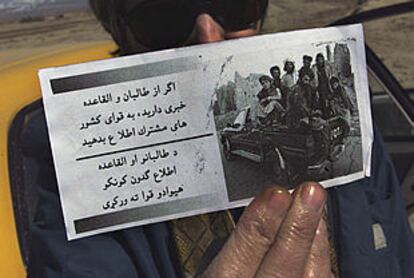 اگر از طالبان و القاعده
خبری دارید، به قوای کشور
های مشترک اطلاع بدهید
د طالبانو او القاعده
اطلاع گډون کونکو
هیوادو قوا ته ورکړی